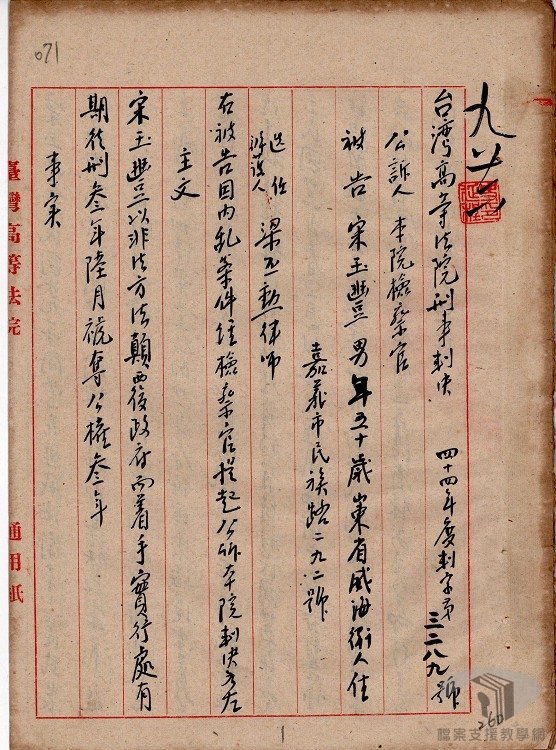 071
九 廿八
台湾高等法院刑事判決 四十四年度判字第三二八九號
公訴人 本院檢察官
被告 宋玉豐 男 年五十歲 山東省威海衛人住
嘉義市民族路二九二號
選任
辯護人 梁 勳律師
右被告因內乱案件経檢察官提起公訴本院判決如左
主文
宋玉豐以非法方法顛覆政府而着手實行處有
期徒刑叁年陸月褫奪公權叁年
事实
臺灣高等法院
通用紙
1
260
檔案支援教學網